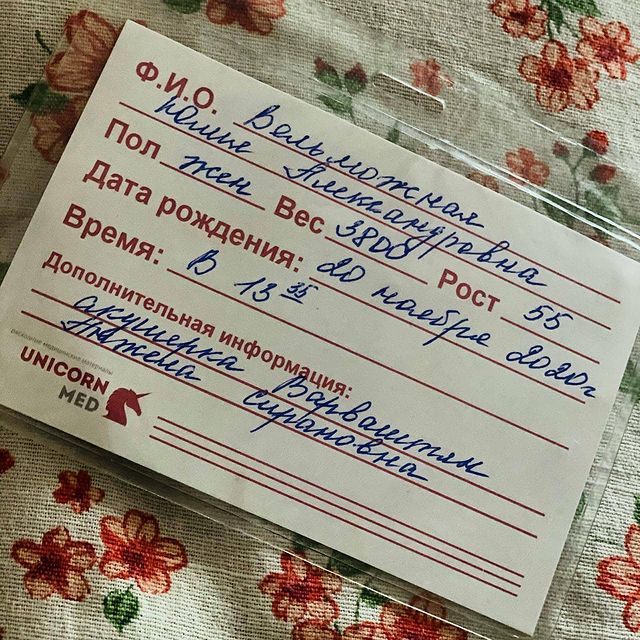 Ф.И.О. Вельможная
Юлия Александровна
Пол жен Вес 3800 Рост 55
Дата рождения: 20 ноября 2020г
Время: В 13 35
Дополнительная информация:
акушерка Варваштян
сирановна
расходные медицинские материалы
UNICORN
MED